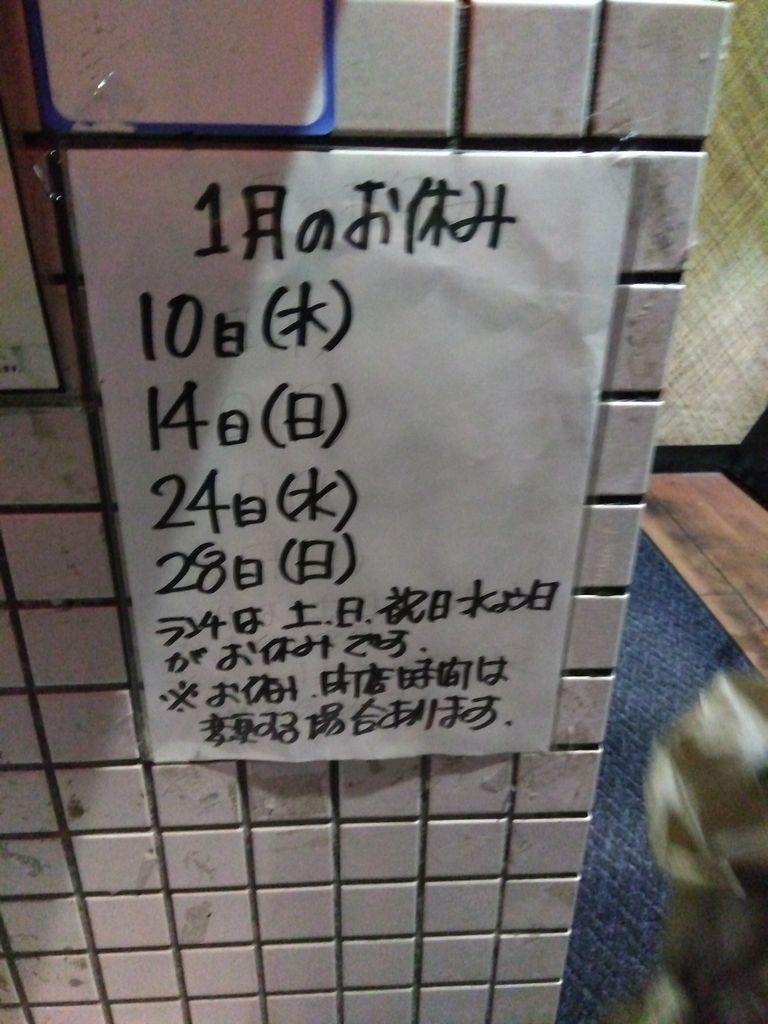 1月のお休み
10日(水)
14日(日)
24日(水)
28日(日)
ランチは 土.日.祝日 水よう日
がお休みです.
※お休み.開店時間は
変更する場合あります.